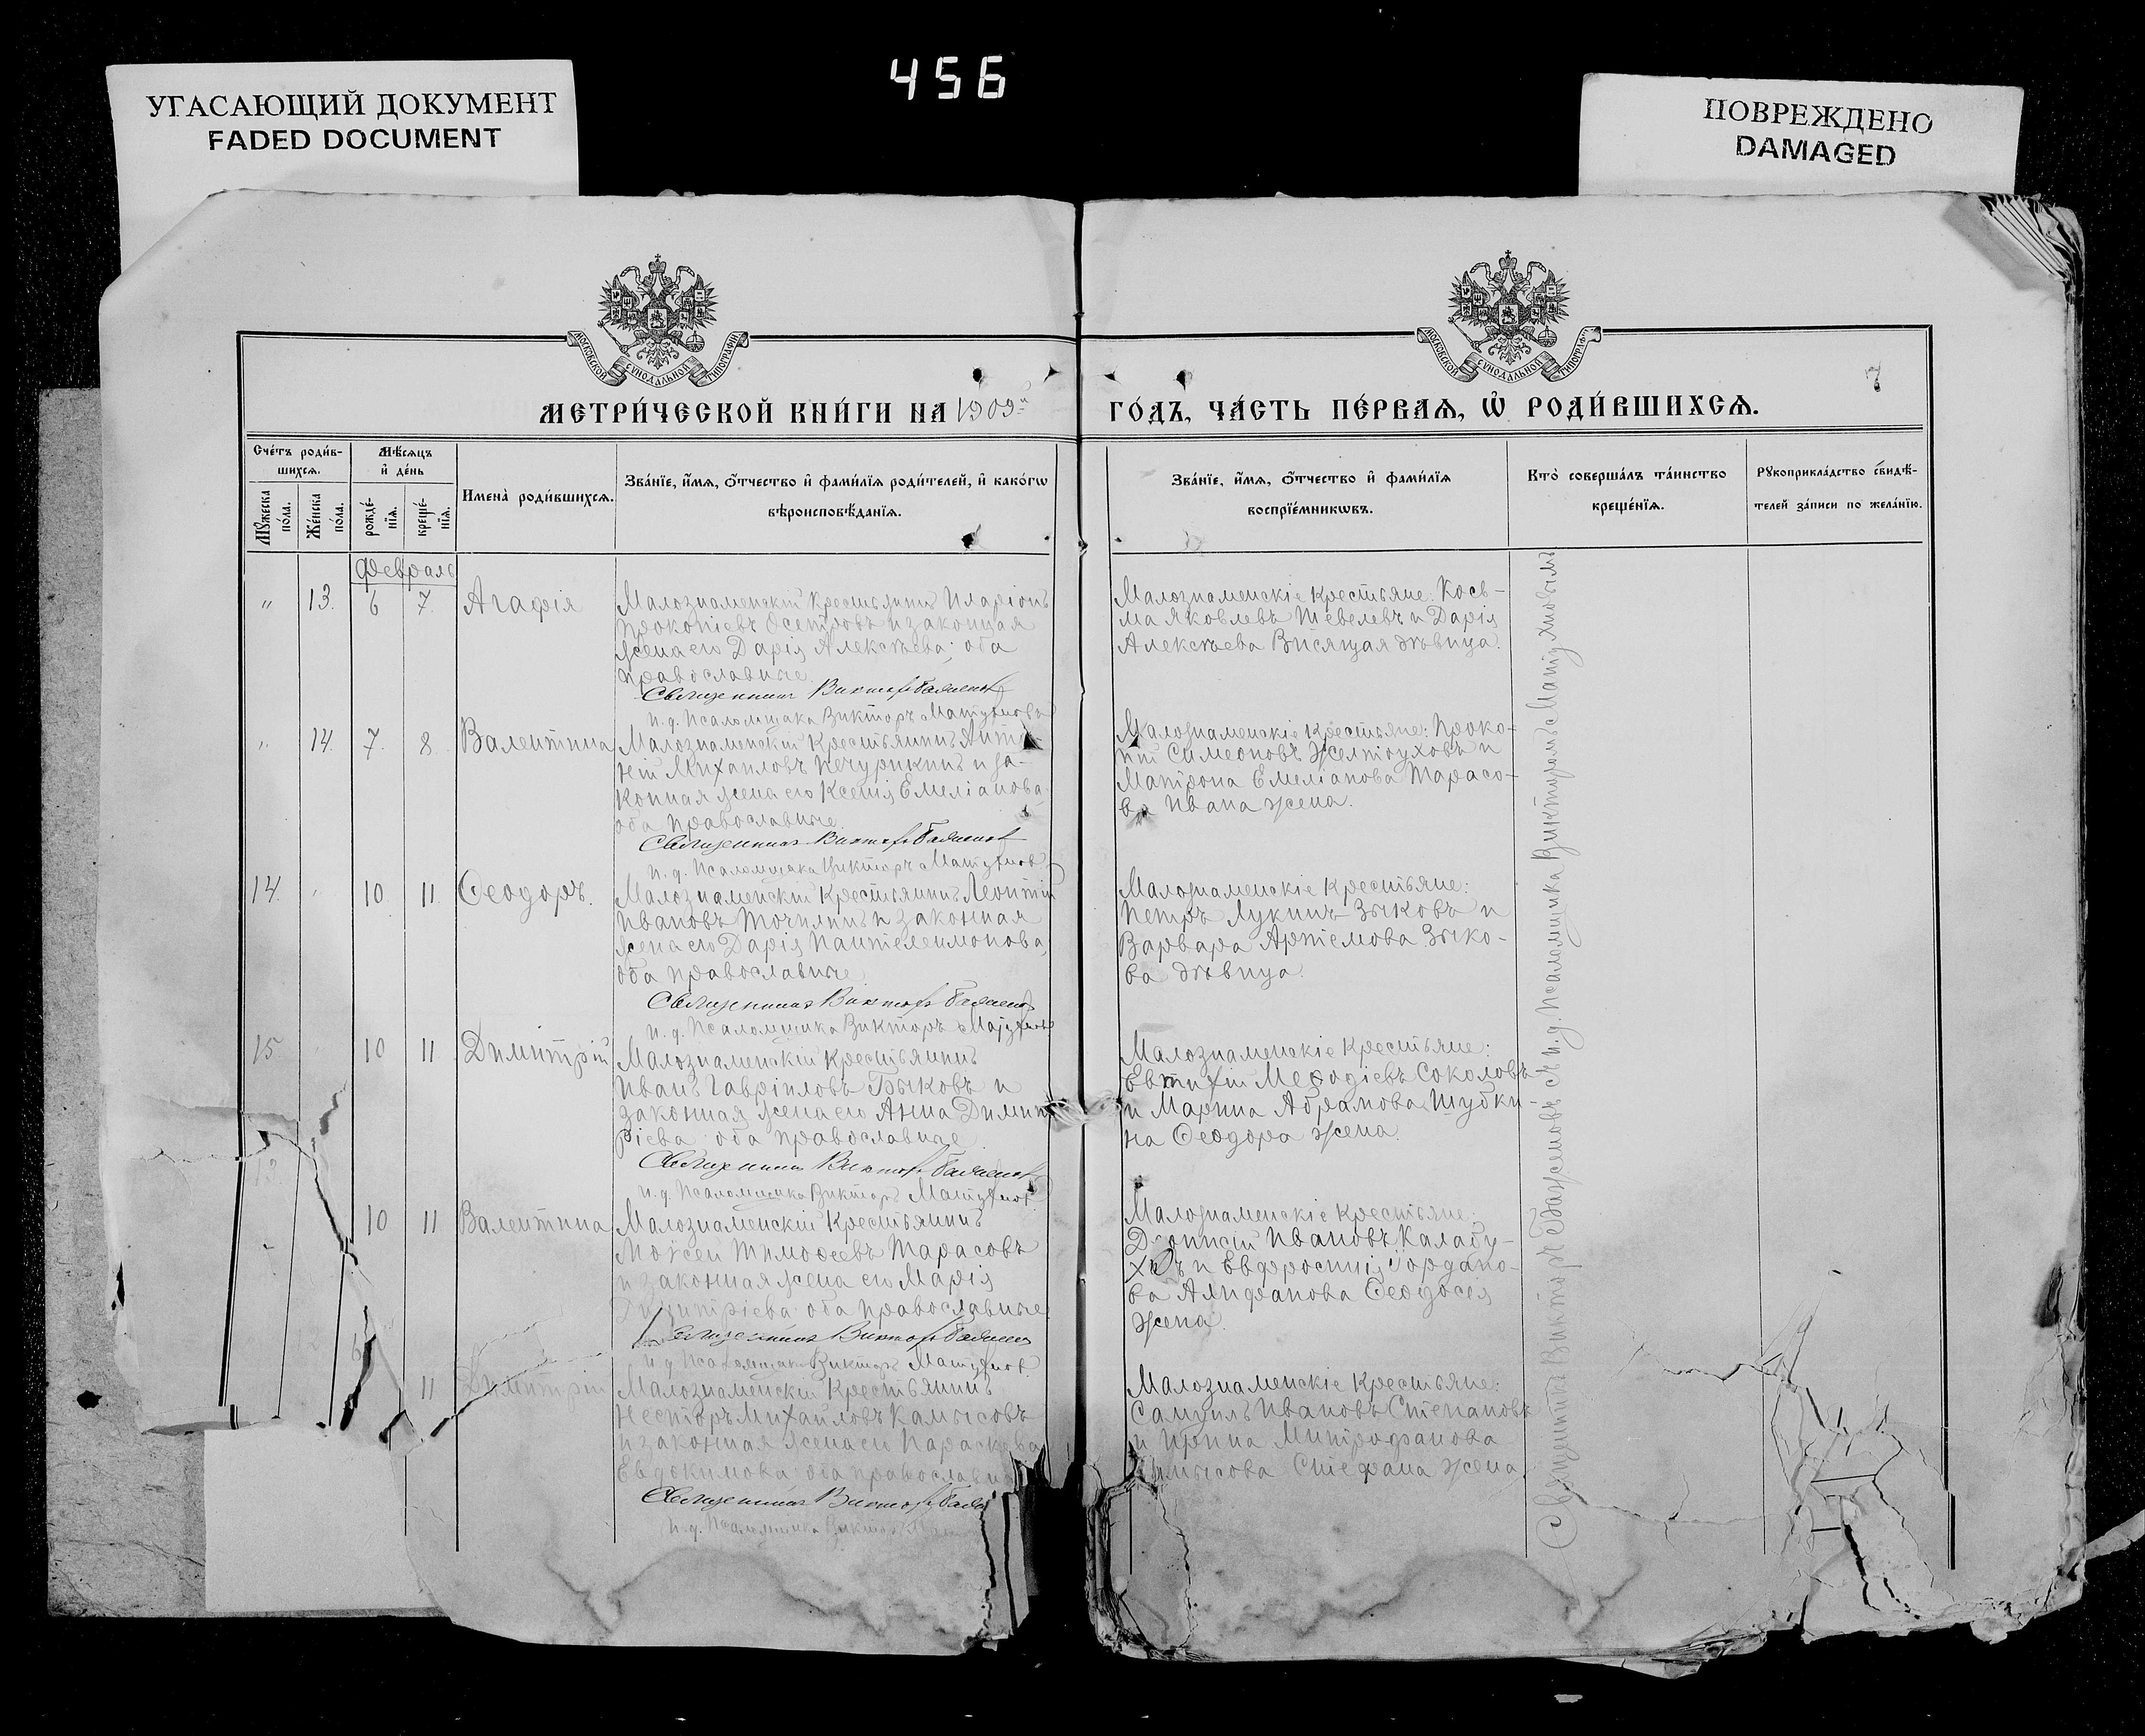 456
УГАСАЮЩИЙ ДОКУМЕНТ
FADED DOCUMENT
ПОВРЕЖДЕНО
DAMAGED
МОСКОВСКОЙ СУНОДАЛЬНОЙ ТИПОГРАФІИ
МОСКОВСКОЙ СУНОДАЛЬНОЙ ТИПОГРАФІИ
7
МЕТРИ́ЧЕСКОЙ КНИ́ГИ НА 1909й ГО́ДЪ, ЧА́СТЬ ПЕ́РВАѦ, Ѡ҆ РОДИ́ВШИХСѦ.
Сче́тъ роди́в-
шихсѧ.
Мꙋ́жеска по́ла.
Же́нска по́ла.
Мѣ́сѧцъ
и҆ де́нь
рожде́-
нїѧ.
креще́-
нїѧ.
Имена̀ роди́вшихсѧ.
Зва́нїе, и҆́мѧ, ѻ҆́тчество и҆ фами́лїѧ роди́телей, и҆ како́гѡ
вѣроисповѣ́данїѧ.
Зва́нїе, и҆́мѧ, ѻ҆́тчество и҆ фами́лїѧ
воспрїе́мникѡвъ.
Кто̀ соверша́лъ та́инство
креще́нїѧ.
Рꙋкоприкла́дство свидѣ́-
телей за́писи по жела́нїю.
Февраль
" 13. 6 7. Агафія
Малознаменскій крестьянинъ Иларіонъ
Прокопіевъ Осетровъ и законная
жена его Дарія Алексѣева; оба
православные.
Священникъ Викторъ Баженовъ
и. д. Псаломщика Викторъ Матухновъ
Малознаменскіе крестьяне: Кось-
ма Яковлевъ Шевелевъ и Дарія
Алексѣева Висящая дѣвица.
" 14. 7. 8. Валентина
Малознаменскій крестьянинъ Анто-
ній Михаиловъ Печурикинъ и за-
конная жена его Ксенія Емеліанова,
оба православные.
Священникъ Викторъ Баженовъ
и. д. Псаломщика Викторъ Матухновъ
Малознаменскіе крестьяне: Проко-
пій Симеоновъ Желтоуховъ и
Матрона Емеліанова Тарасо-
ва Ивана жена.
14. " 10. 11. Ѳеодоръ.
Малознаменскій крестьянинъ Леонтій
Ивановъ Точилинъ и законная
жена его Дарія Пантелеимонова,
оба православные.
Священникъ Викторъ Баженовъ
и. д. Псаломщика Викторъ Матухновъ
Малознаменскіе крестьяне:
Петръ Лукинъ Зыковъ и
Варвара Артемова Зыко-
ва дѣвица.
15. 10 11 Димитрій
Малознаменскій крестьянинъ
Иванъ Гавріиловъ Быковъ и
законная жена его Анна Димит-
ріева оба православные.
Священникъ Викторъ Баженовъ
и. д. Псаломщика Викторъ Матухновъ
Малознаменскіе крестьяне:
Евтихій Меѳодіевъ Соколовъ
и Марина Абрамова Шубки-
на Ѳеодора жена.
10 11 Валентина
Малознаменскій крестьянинъ
Моѵсей Тимоѳеевъ Тарасовъ
и законная жена его Марія
Димитріева оба православные
Священникъ Викторъ Баженовъ
и. д. Псаломщика Викторъ Матухновъ
Малознаменскіе крестьяне:
Діонисій Ивановъ Калабу-
ховъ и Евфросинія Іордано-
ва Алифанова Ѳеодосія
жена.
11 Димитрій
Малознаменскій крестьянинъ
Несторъ Михаиловъ Камысовъ
и законная жена его Параскева
Евдокимова оба православные
Священникъ Викторъ
и. д. Псаломщика Викторъ
Малознаменскіе крестьяне:
Самуилъ Ивановъ Степановъ
и Ирина Митрофанова
Камысова Стефана жена.
Священникъ Викторъ Баженовъ съ и. д. Псаломщика Викторомъ Матухновымъ